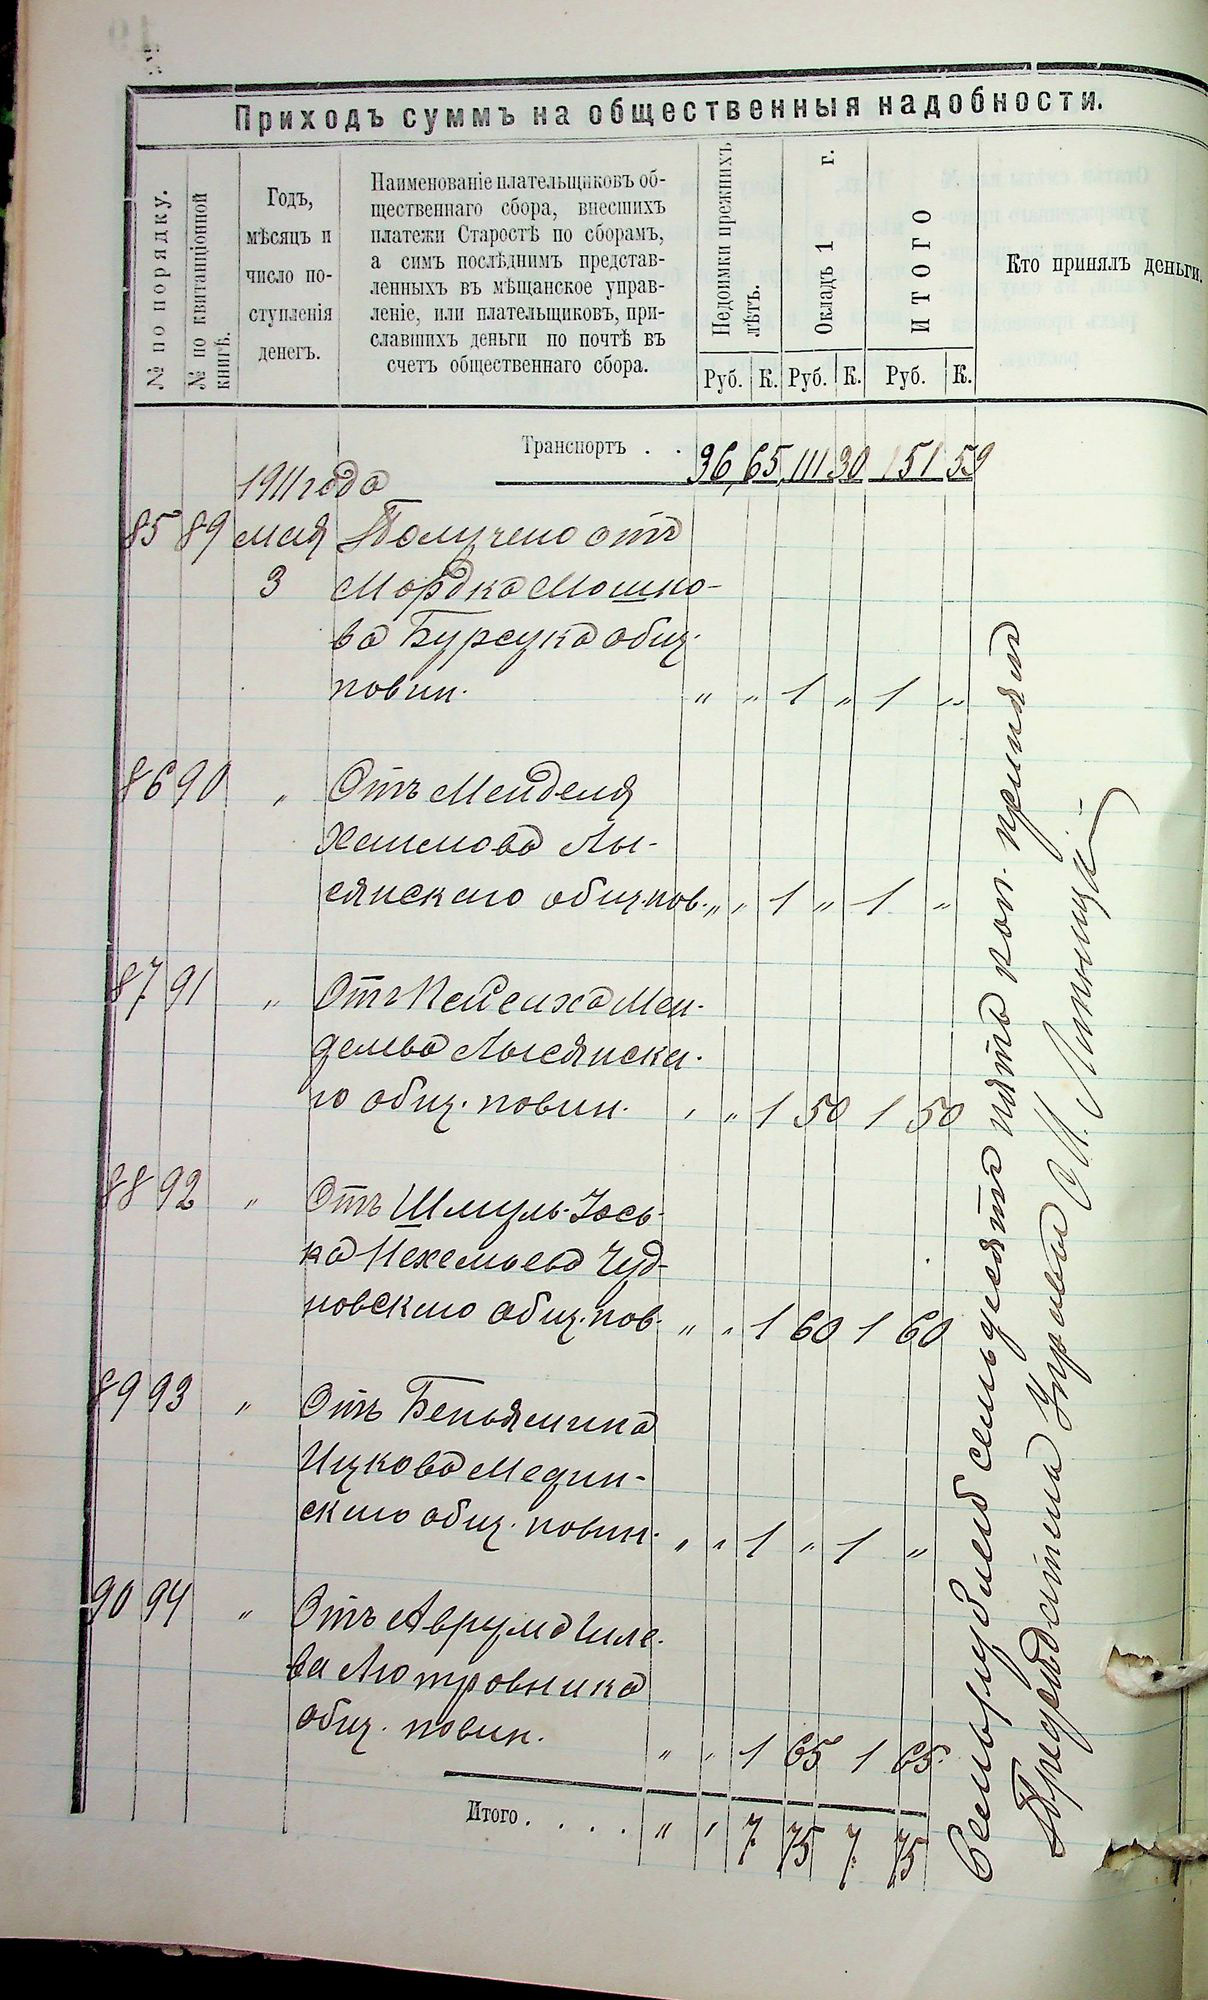 Приходъ суммъ на общественныя надобности.
№ по порядку.
№ по квитанціонной книгѣ.
Годъ,
мѣсяцъ и
число по-
ступленія
денегъ.
Наименованіе плательщиковъ об-
щественнаго сбора, внесшихъ
платежи Старостѣ по сборамъ,
а симъ послѣднимъ представ-
ленныхъ въ мѣщанское управ-
леніе, или плательщиковъ, при-
славшихъ деньги по почтѣ въ
счетъ общественнаго сбора.
Недоимки прежнихъ
лѣтъ.
Окладъ 1 г.
ИТОГО
Кто принялъ деньги.
Руб. К. Руб. К. Руб. К.
Транспортъ . . 36 65 111 30 151 59
1911 года
85 89 мая Получено отъ
3 Мордка Мошко-
ва Бурсука общ.
повин. " " 1 " 1 "
86 90 " Отъ Менделя
Хаимова Лы-
сянскаго общ. пов. " " 1 " 1 "
87 91 " Отъ Пейсиха Мен-
делева Лысянска-
го общ. повин. " " 1 50 1 50
88 92 " Отъ Шмуль-Iось-
ка Нехемьева Чуд-
новскаго общ. пов. " " 1 60 1 60
89 93 " Отъ Беньямина
Ицкова Медин-
скаго общ. повин. " " 1 " 1 "
90 94 " Отъ Аврума Шле-
ва Лютровника
общ. повин. " " 1 65 1 65
Итого . . . . " " 7 75 7 75
Семь рублей семьдесятъ пять коп. принялъ
Предсѣдатель Управы